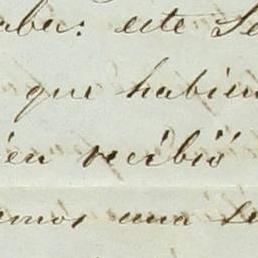 aber: este Se
que habien
ien recibió
emos una se